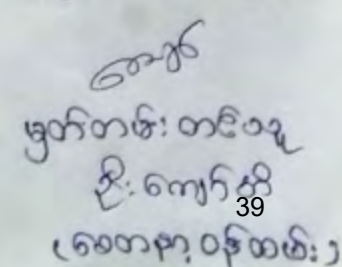 မှတ်တမ်း တင်သူ
ဦးကျော်
39
(စေတနာ့ ဝန်ထမ်း)